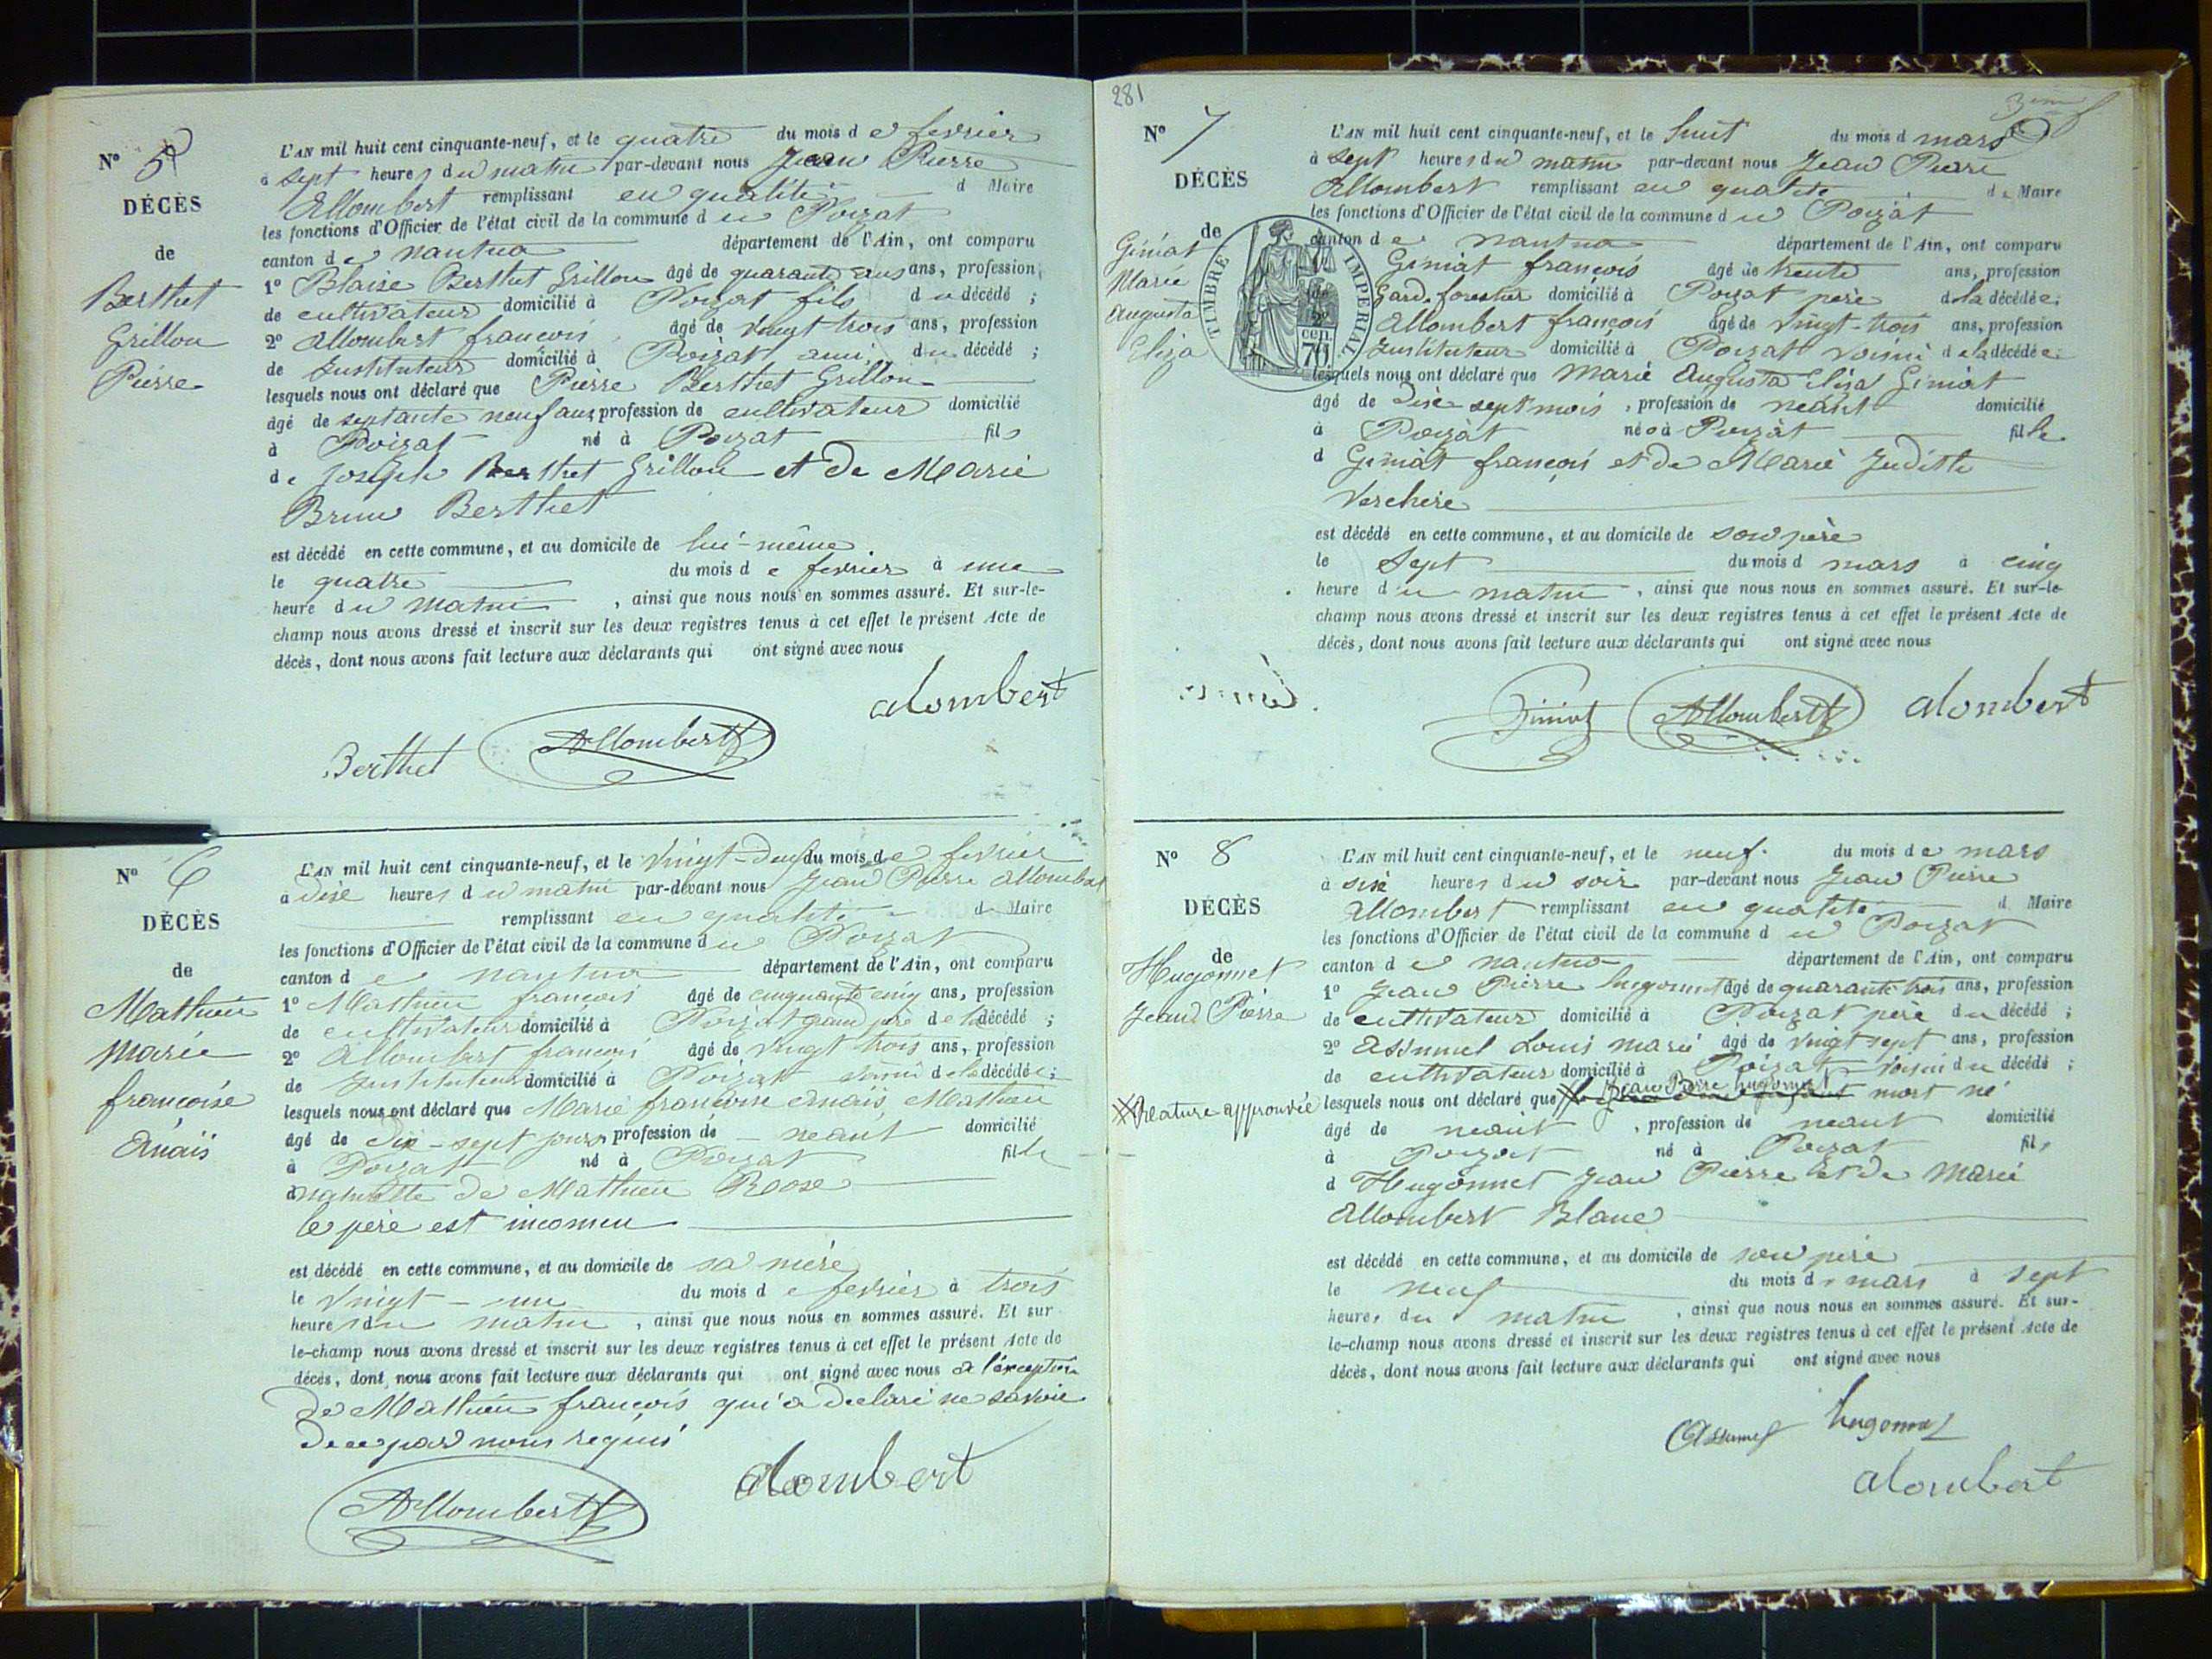 N° 5
DÉCÈS
de
Berthet
Grillon
Pierre
L'AN mil huit cent cinquante-neuf, et le quatre du mois de fevrier
à sept heures du matin par-devant nous Jean Pierre
Allombert remplissant en qualité d Maire
les fonctions d'Officier de l'état civil de la commune du Poizat
canton de nantua département de l'Ain, ont comparu
1° Blaise Berthet Grillon âgé de quarante ans ans, profession
de cultivateur domicilié à Poizat fils du décédé ;
2° allombert francois âgé de vingt trois ans, profession
de Instituteur domicilié à Poizat ami du décédé ;
lesquels nous ont déclaré que Pierre Berthet Grillon
âgé de septante neuf ans profession de cultivateur domicilié
à Poizat né à Poizat fils
de Joseph Berthet Grillon et de Marie
Brun Berthet
est décédé en cette commune, et au domicile de lui-même
le quatre du mois de fevrier à une
heure du matin, ainsi que nous nous en sommes assuré. Et sur-le-
champ nous avons dressé et inscrit sur les deux registres tenus à cet effet le présent Acte de
décès, dont nous avons fait lecture aux déclarants qui ont signé avec nous
alombert
Berthet Allombert
N° 6
DÉCÈS
de
Mathieu
Marie
francoise
Anaïs
L'AN mil huit cent cinquante-neuf, et le vingt-deux du mois de fevrier
à dixe heures du matin par-devant nous Jean Pierre allombert
remplissant en qualité de Maire
les fonctions d'Officier de l'état civil de la commune du Poizat
canton de nantua département de l'Ain, ont comparu
1° Mathieu francois âgé de cinquante cinq ans, profession
de cultivateur domicilié à Poizat grand père de la décédé ;
2° Allombert francois âgé de vingt trois ans, profession
de Instituteur domicilié à Poizat de la décédée ;
lesquels nous ont déclaré que Marie francoise anaïs Mathieu
âgé de dix-sept jours profession de neant domicilié
à Poizat né à Poizat fille
naturelle de Mathieu Roose
le père est inconnu
est décédé en cette commune, et au domicile de sa mère
le vingt-un du mois de fevrier à trois
heures du matin, ainsi que nous nous en sommes assuré. Et sur
le-champ nous avons dressé et inscrit sur les deux registres tenus à cet effet le présent Acte de
décès, dont nous avons fait lecture aux déclarants qui ont signé avec nous à l'exception
de Mathieu francois qui a declaré ne savoir
de ce par nous requis
Allombert alombert
281
3eme
N° 7
DÉCÈS
de
Giniat
Marie
Augusta
Eliza
TIMBRE IMPERIAL
70 cen.
L'AN mil huit cent cinquante-neuf, et le huit du mois d mars
à sept heures du matin par-devant nous Jean Pierre
Allombert remplissant en qualité de Maire
les fonctions d'Officier de l'état civil de la commune du Poizat
canton de nantua département de l'Ain, ont comparu
Giniat francois âgé de trente ans, profession
Gard. forestier domicilié à Poizat père de la décédée ;
2° Allombert francois âgé de vingt-trois ans, profession
Instituteur domicilié à Poizat voisin de la décédée ;
lesquels nous ont déclaré que Marie Augusta Eliza Giniat
âgé de dixe sept mois, profession de neant domicilié
à Poizat née à Poizat fille
d Giniat francois et de Marie Judith
Verchere
est décédé en cette commune, et au domicile de son père
le Sept du mois d mars à cinq
heure du matin, ainsi que nous nous en sommes assuré. Et sur-le-
champ nous avons dressé et inscrit sur les deux registres tenus à cet effet le présent Acte de
décès, dont nous avons fait lecture aux déclarants qui ont signé avec nous
Giniat Allombert alombert
N° 8
DÉCÈS
de
Hugonnet
Jean Pierre
L'AN mil huit cent cinquante-neuf, et le neuf du mois de mars
à sixe heures du soir par-devant nous Jean Pierre
allombert remplissant en qualité d Maire
les fonctions d'Officier de l'état civil de la commune du Poizat
canton de nantua département de l'Ain, ont comparu
1° Jean Pierre hugonnet âgé de quarante trois ans, profession
de cultivateur domicilié à Poizat père du décédé ;
2° Assumel Louis marie âgé de vingt sept ans, profession
de cultivateur domicilié à Poizat voisin du décédé ;
Jean Pierre hugonnet
lesquels nous ont déclaré que mort né
Rature approuvée
âgé de neant, profession de neant domicilié
à Poizat né à Poizat fils
d Hugonnet Jean Pierre et de Marie
Allombert Blanc
est décédé en cette commune, et au domicile de son père
le neuf du mois de mars à sept
heures du matin, ainsi que nous nous en sommes assuré. Et sur-
le-champ nous avons dressé et inscrit sur les deux registres tenus à cet effet le présent Acte de
décès, dont nous avons fait lecture aux déclarants qui ont signé avec nous
Assumel hugonnet
alombert